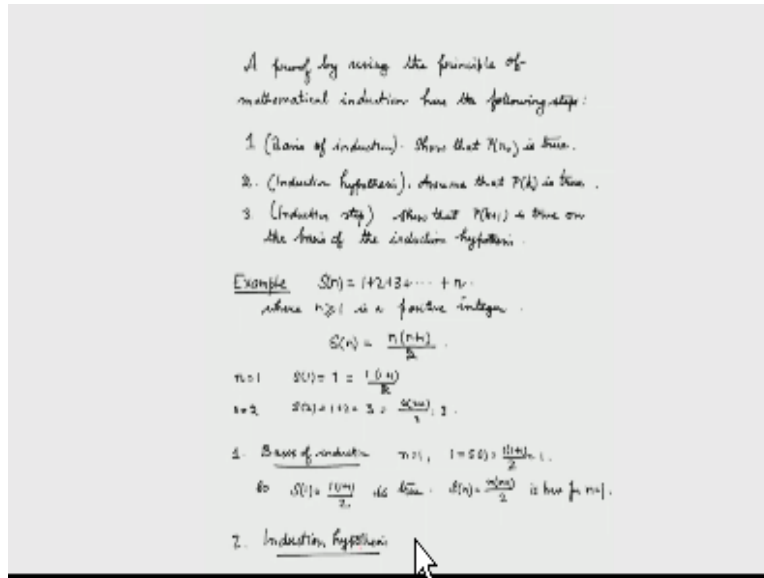 A proof by using the principle of
mathematical induction has the following steps:
1. (Basis of induction). Show that P(n₀) is true.
2. (Induction hypothesis). Assume that P(k) is true.
3. (Induction step) Show that P(k+1) is true on
the basis of the induction hypothesis.
Example S(n) = 1+2+3+ ⋯ + n
where n ≥ 1 is a positive integer.
S(n) = n(n+1)/2.
n=1 S(1) = 1 = 1(1+1)/2
n=2 S(2) = 1+2 = 3 =
1. Basis of induction n=1, 1 = S(1) = 1(1+1)/2 = 1.
So S(1) = 1(1+1)/2 is true. S(n) = n(n+1)/2 is true for n=1.
2. Induction hypothesis